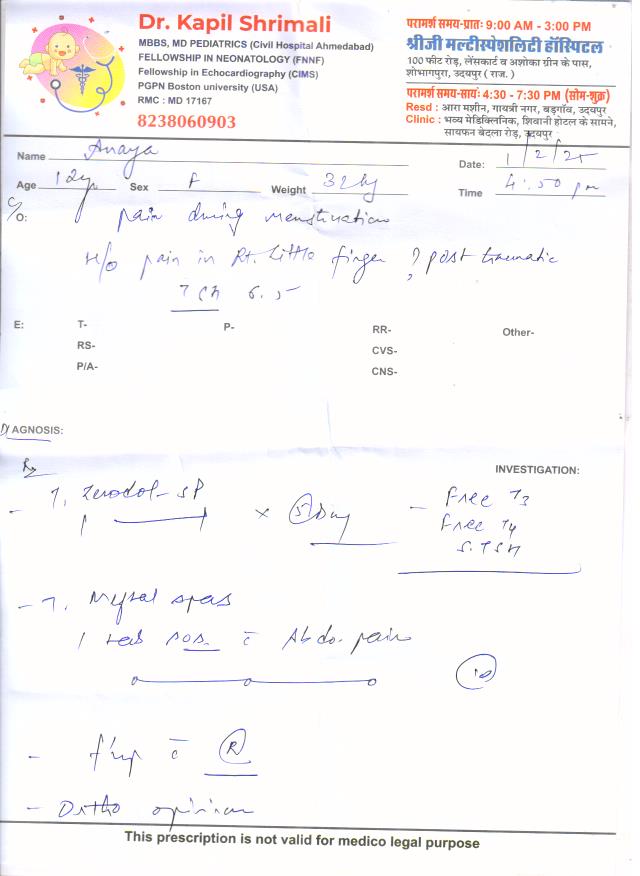 Dr. Kapil Shrimali
MBBS, MD PEDIATRICS (Civil Hospital Ahmedabad)
FELLOWSHIP IN NEONATOLOGY (FNNF)
Fellowship in Echocardiography (CIMS)
PGPN Boston university (USA)
RMC : MD 17167
8238060903
परामर्श समय-प्रातः 9:00 AM - 3:00 PM
श्रीजी मल्टीस्पेशलिटी हॉस्पिटल
100 फीट रोड़, लेंसकार्ट व अशोका ग्रीन के पास,
शोभागपुरा, उदयपुर ( राज. )
परामर्श समय-सायः 4:30 - 7:30 PM (सोम-शुक्र)
Resd : आरा मशीन, गायत्री नगर, बड़गाँव, उदयपुर
Clinic : भव्य मेडिक्लिनिक, शिवानी होटल के सामने,
सायफन बेदला रोड़, उदयपुर
Name Anaya Date: 1/2/25
Age 12y Sex F Weight 32 kg Time 4:50 pm
C/O: pain during menstruation
H/o pain in Rt. little finger ? post traumatic
TSH 6.5
E: T- P- RR- Other-
RS- CVS-
P/A- CNS-
DIAGNOSIS:
Rx INVESTIGATION:
- T. Zerodol-SP x 5 Day - Free T3
Free T4
S. TSH
- T. Meftal spas
1 tab SOS c̄ Abdo. pain
10
- f/up c̄ R
- Ortho opinion
This prescription is not valid for medico legal purpose